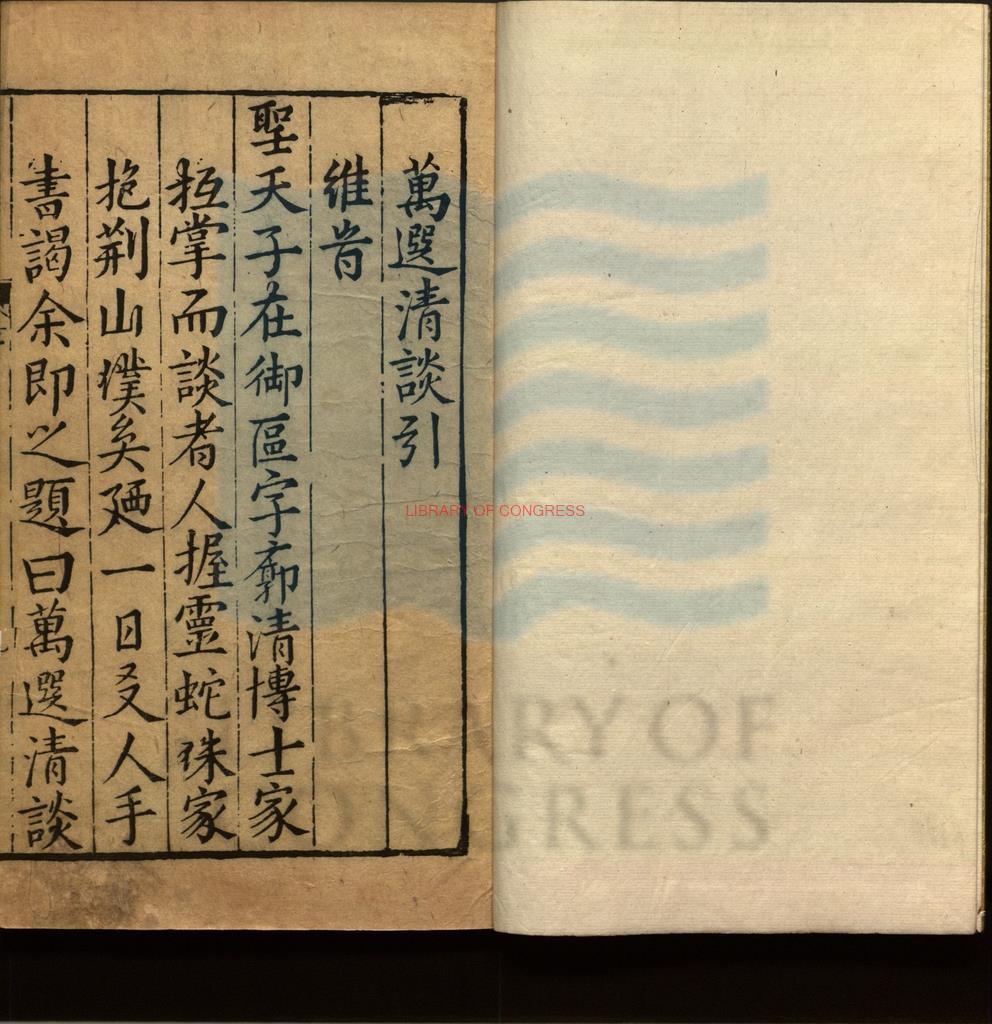 萬選清談引
維昔
聖天子在御區宇廓清博士家
抵掌而談者人握靈蛇珠家
抱荆山璞矣廼一日友人手
書謁余即之題曰萬選清談
LIBRARY OF CONGRESS
LIBRARY OF
CONGRESS